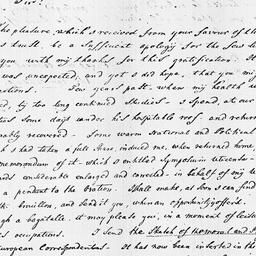 Sir!
The pleasure, which I received from your favour of the
s must be a sufficient apology for the few li
you with my thanks for this gratification. It
was unexpected, and yet I did hope, that you mig
ations. Few years past when my health w
ed, by too long continued studies - I spend, at our
tat some days under his hospitable roof and return
rably recovered - Some warm national and Political
h I had taken a full share, induced me, when returned home,
memorandum of it - which I entitled Symposium
and considerable enlarged and cancel'd - in behalf of my l
a pendent to the Oration. Shall make, as soon I can find
it written, and send it you, when an opportunity offers'd.
ugh a bagatelle, it may please you, in a moment of leisu
us occupations. I send the Sketch of the moral and P
European Correspondents. It has now been inserted in the